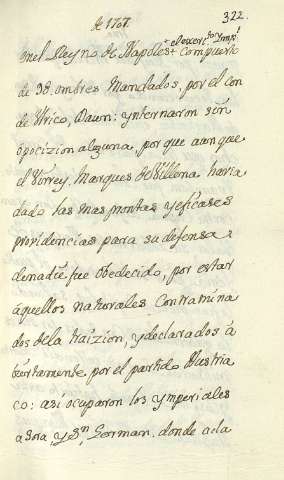 de 1707. 322.
+ el exerc.to Ymp.l
en el Reyno de Napoles + Compuesto
de 38. ombres Mandados, por el Con
de Virico, Daun: ynternaron sin
opocizion alguna, por que aunque
el Virrey. Marques de Villena havia
dado las mas prontas y eficases
providencias para su defensa
de nadie fue obedecido, por estar
aquellos naturales Contamina
dos de la traizion, y declarados à
biertamente por el partido Austria
co: asi ocuparon los ymperiales
a Sora, y S.n German. donde a la